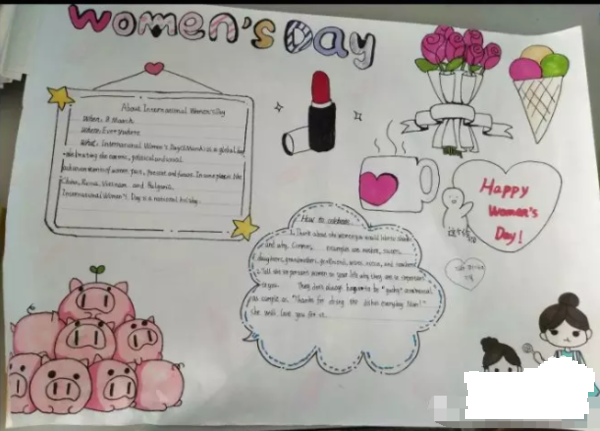 Women's Day
About International Women's Day
When: 8 March
Where: Everywhere
What: International Women's Day (8 March) is a global day
celebrating the economic, political and social
achievements of women past, present and future. In some places like
China, Russia, Vietnam and Bulgaria,
International Women's Day is a national holiday.
How to celebrate
1. Think about the women you would like to
and why. Common examples are mother, sisters,
daughters, grandmothers, girlfriend, wives, nieces, and
Tell the important women in your life why they are so important
to you. They don't always have to be "gushy" sentimental
as simple as, "Thanks for doing the dishes everyday Mom!"
She will love you for it.
Happy
Women's
Day!